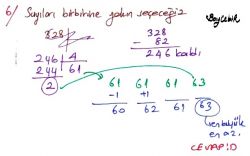 6/ Sayıları birbirine yakın seçeceğiz
328
328
- 82
246 kaldı
246 | 4
244 | 61
2
61 61 61 63
-1 +1
60 62 61 63
en büyük
en az.
CEVAP: D